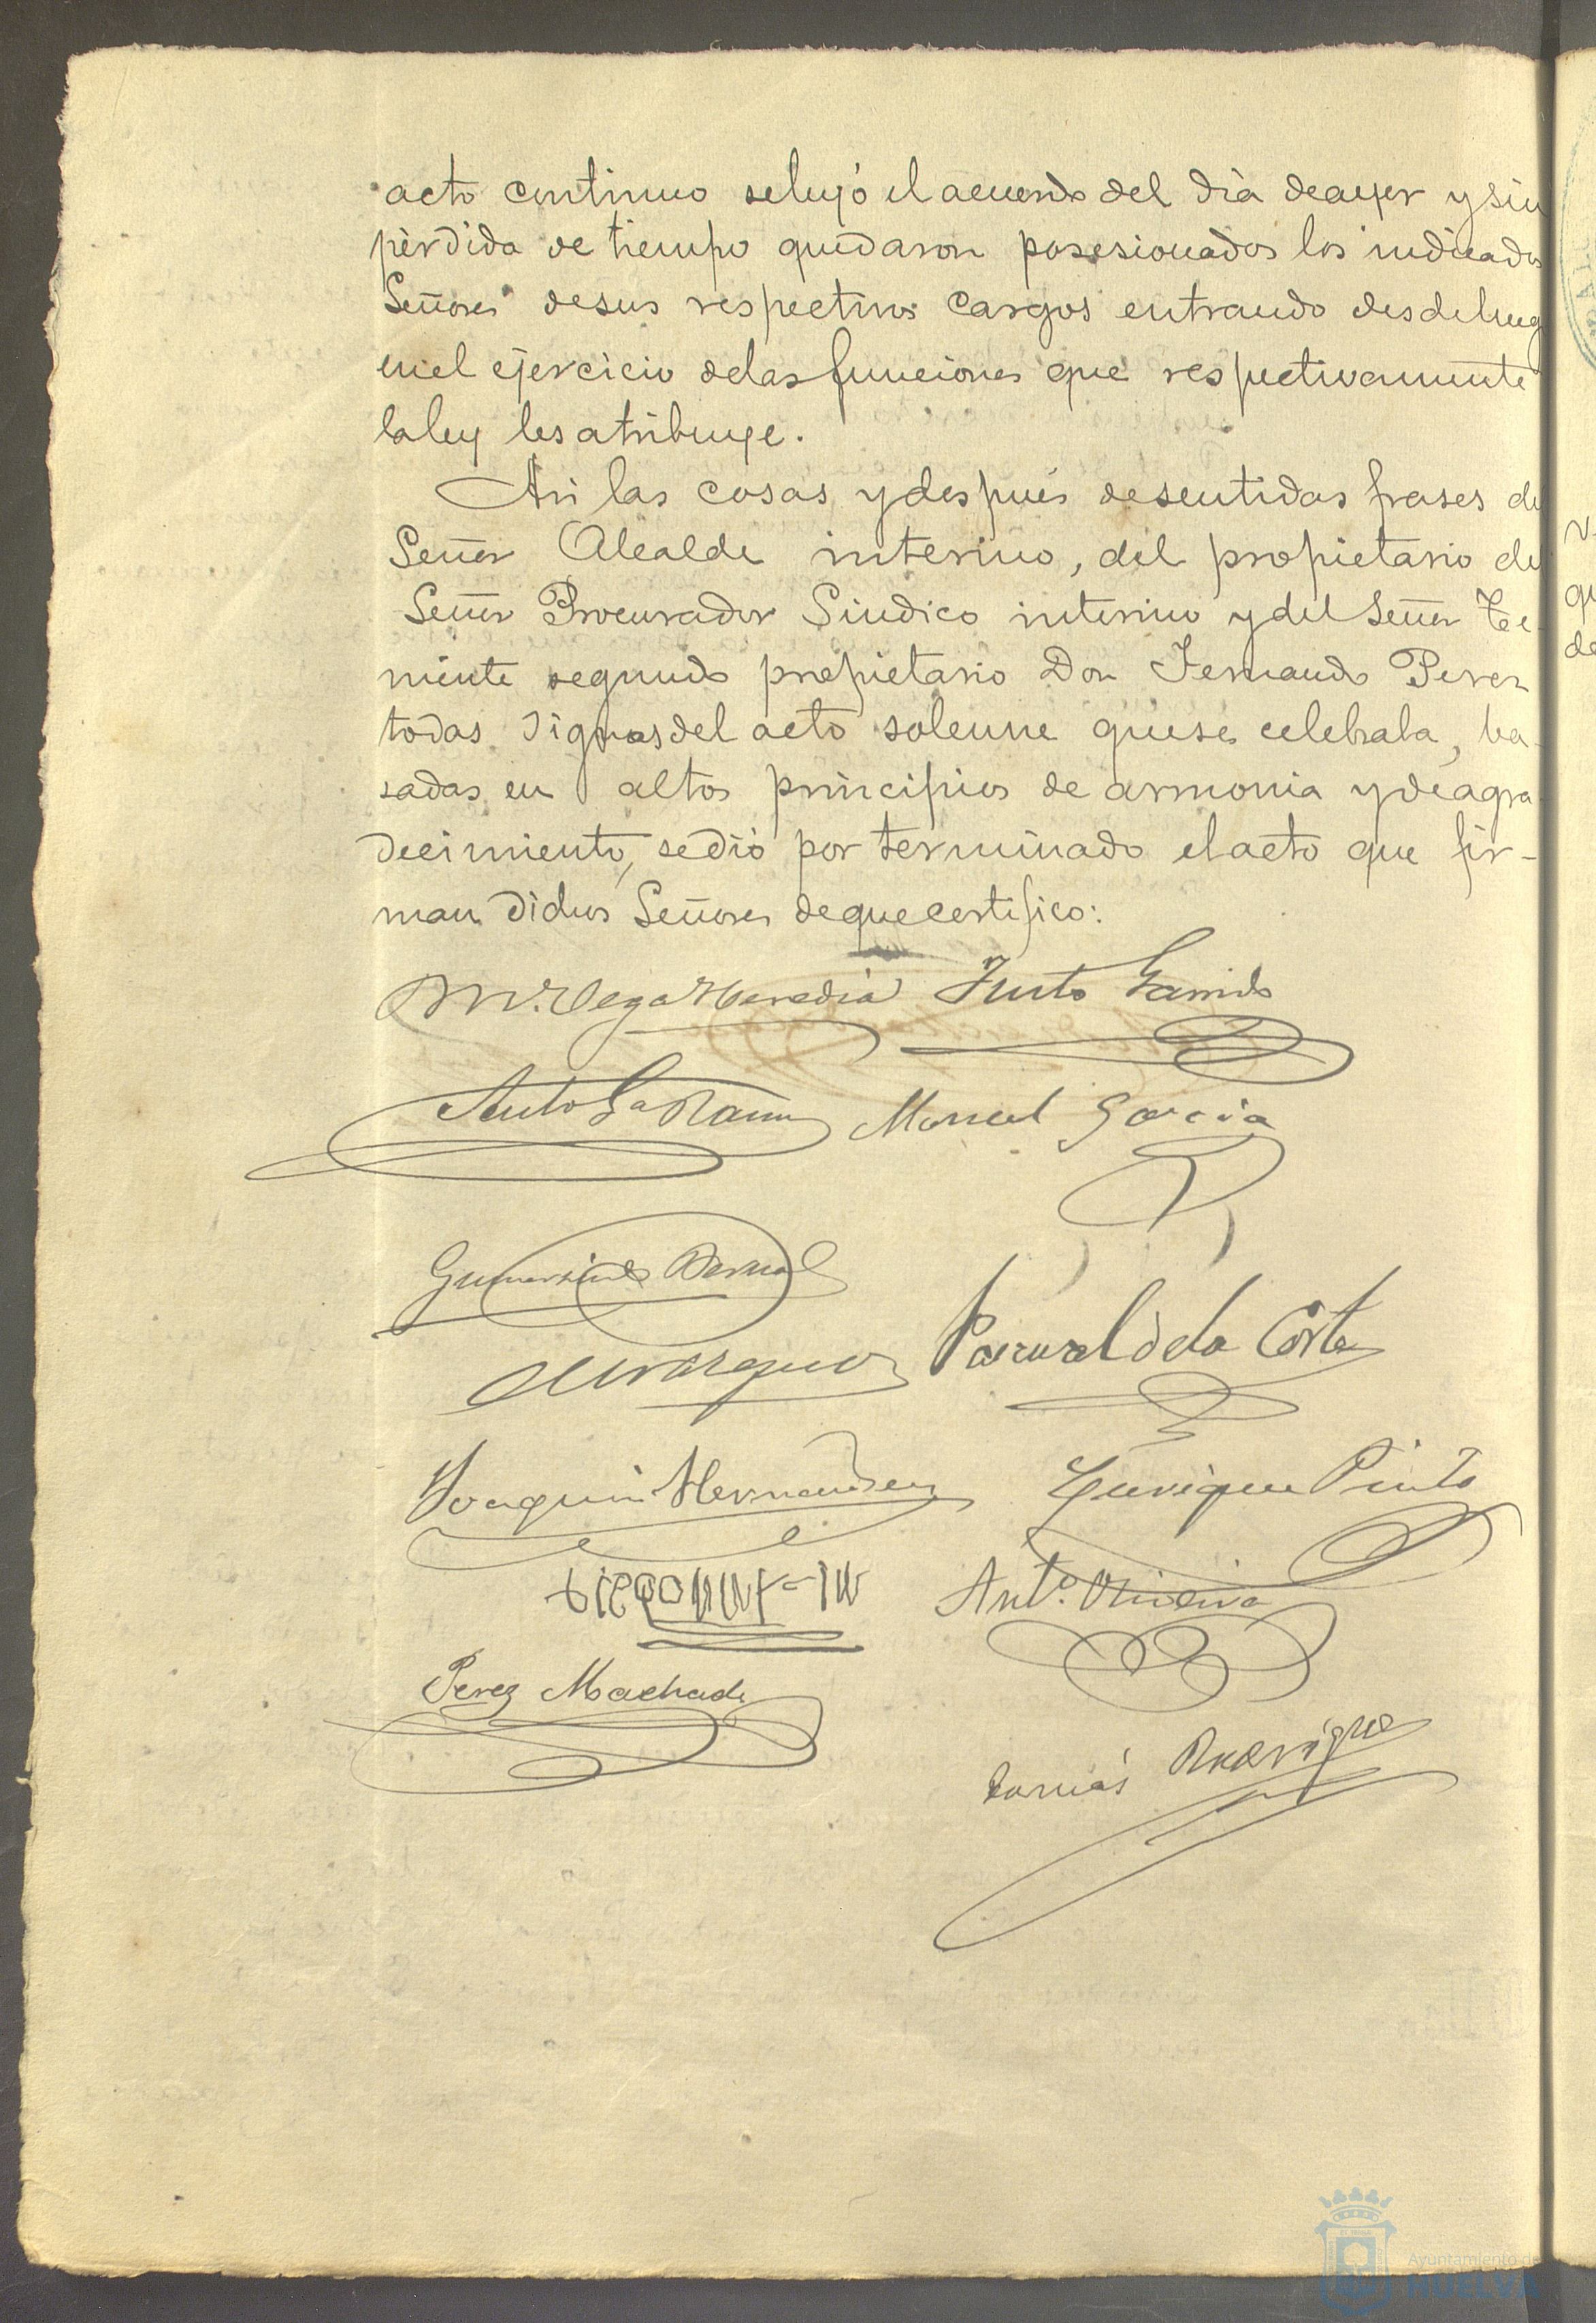 acto continuo se leyó el acuerdo del dia de ayer y sin
pérdida de tiempo quedaron posesionados los indicados
Señores de sus respectivos cargos entrando desde lueg
en el ejercicio de las funciones que respectivamente
la ley les atribuye.
Asi las cosas y despues de sentidas frases del
Señor Alcalde interino, del propietario del
Señor Procurador Sindico interino y del Señor Te-
niente segundo propietario Don Fernando Perez
todas dignas del acto solemne que se celebraba, ba-
sadas en altos principios de armonia y de agra-
decimiento, se dió por terminado el acto que fir-
man dichos Señores de que certifico:
M. Vega Heredia Justo Garrido
Manuel Garcia
Gumersindo Bernal
Vazquez Pascual de la Corte
Joaquin Hernandez Enrique Pinto
Antº. Oliveira
Perez Machado
Tomás Rodrigue
Ayuntamiento de
HUELVA